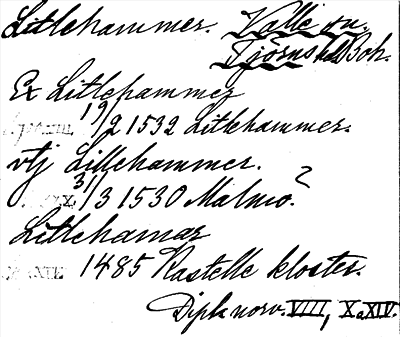 Litlehammer. Valle sn.
Tjörns hd Boh.
Ex Litlehammer
19/2 1532 Litlehammer.
vtj Lillehammer.
31/3 1530 Malmö?
Litlehamar
1485 Kastelle kloster.
Dipl. norv. VIII, X o XIV.